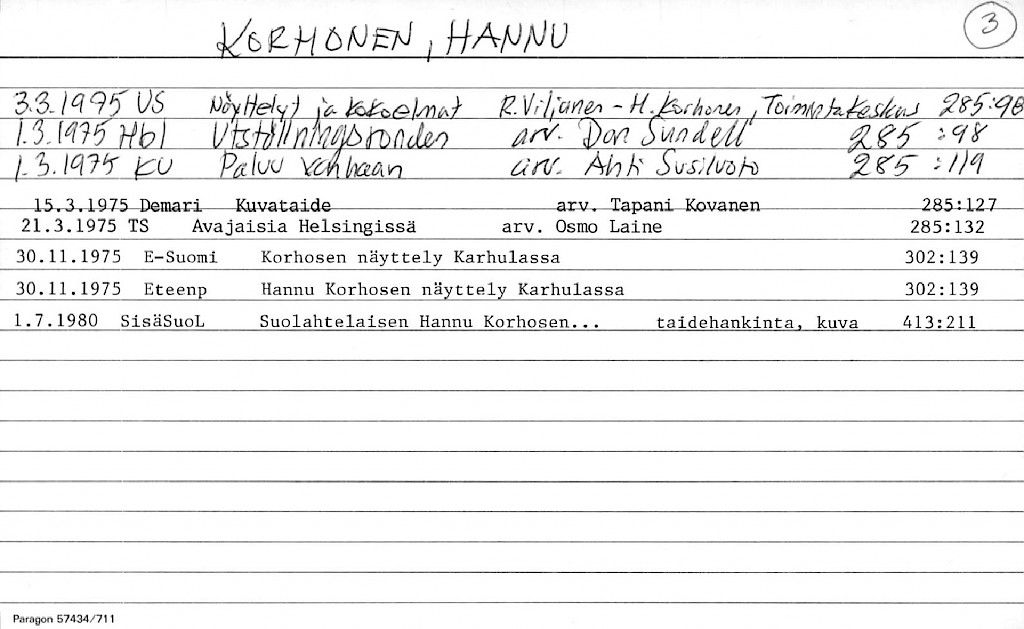 KORHONEN, HANNU 3
3.3.1975 US Näyttelyt ja kokoelmat R. Viljanen - H. Korhonen, Toimintakeskus 285:98
1.3.1975 Hbl Utställningsronden arv. Dan Sundell 285:98
1.3.1975 KU Paluu vanhaan arv. Ahti Susiluoto 285:119
15.3.1975 Demari Kuvataide arv. Tapani Kovanen 285:127
21.3.1975 TS Avajaisia Helsingissä arv. Osmo Laine 285:132
30.11.1975 E-Suomi Korhosen näyttely Karhulassa 302:139
30.11.1975 Eteenp Hannu Korhosen näyttely Karhulassa 302:139
1.7.1980 SisäSuoL Suolahtelaisen Hannu Korhosen... taidehankinta, kuva 413:211
Paragon 57434/711